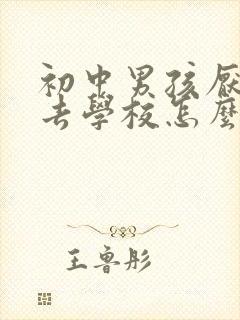 初中男孩厭
去學校怎麼
王鲁彤